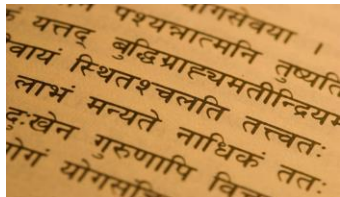 ोगसेवया ।
नं पश्यन्नात्मनि तुष्यति
कं यत्तद् बुद्धिग्राह्यमतीन्द्रियम
वायं स्थितश्चलति तत्त्वतः
लाभं मन्यते नाधिकं ततः
दुःखेन गुरुणापि विच
ोगं योगसंज्ञि